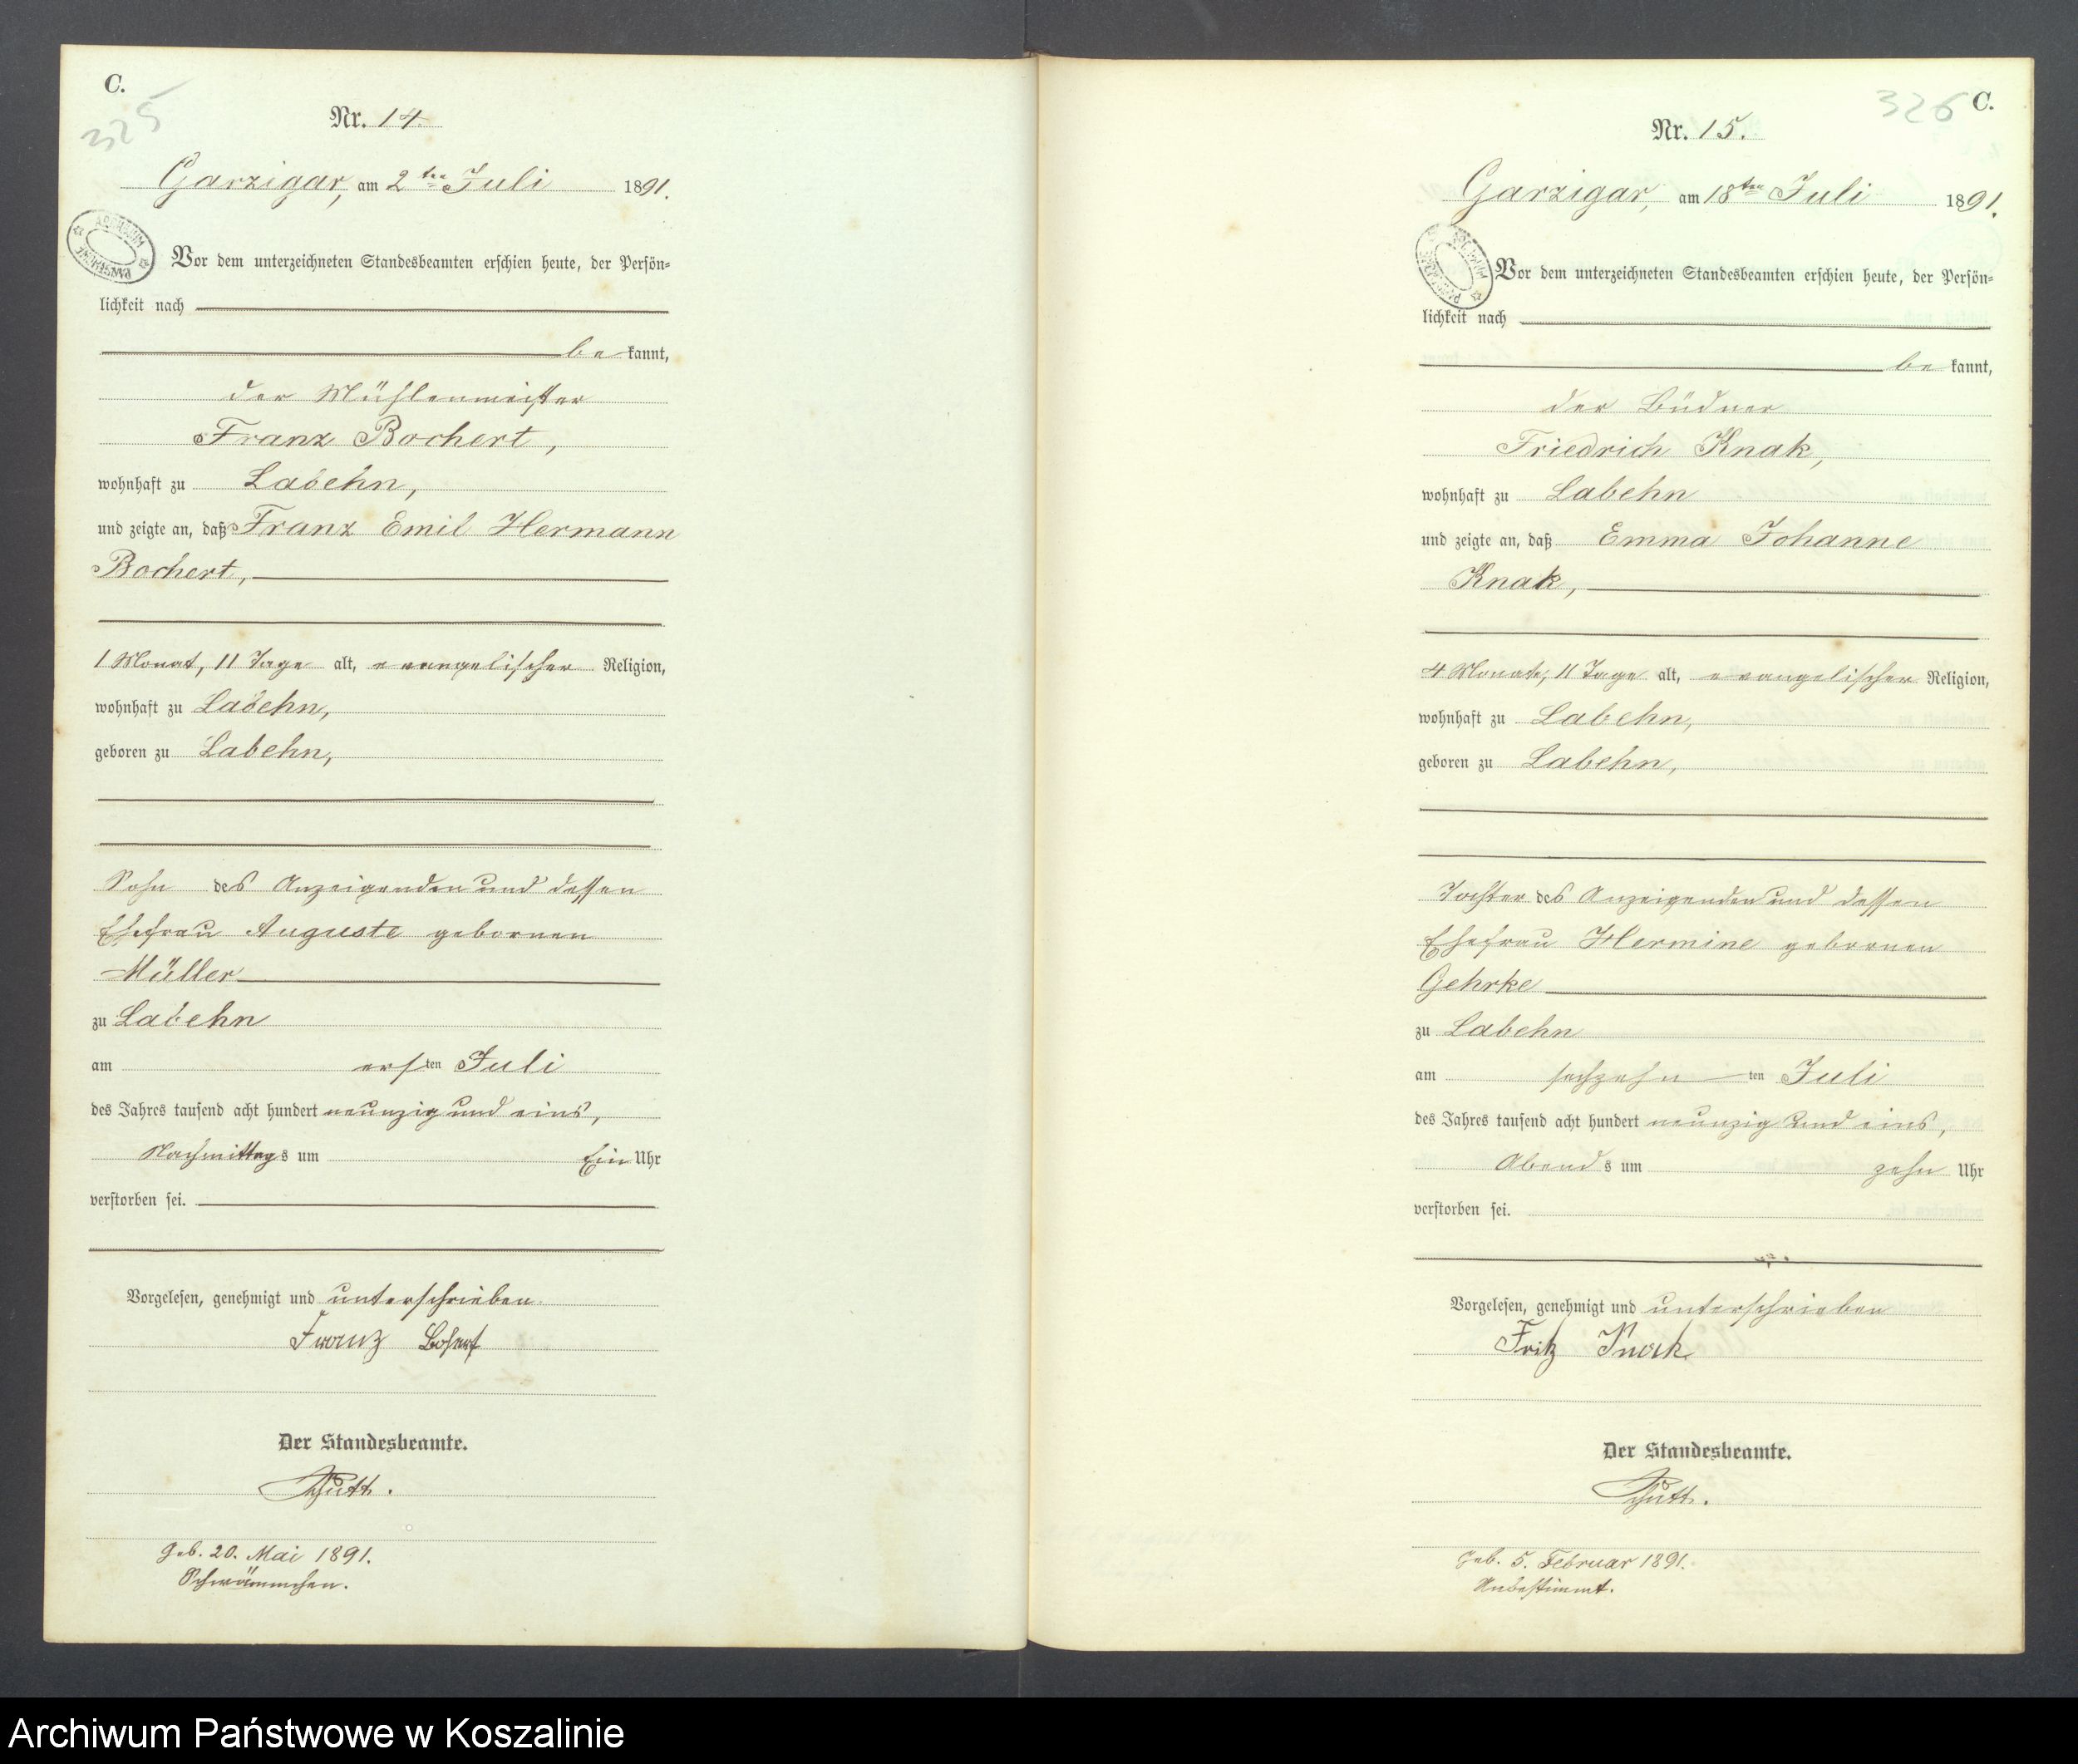 C.
325
Nr. 14.
Garzigar, am 2ten Juli 1891.
ARCHIWUM PAŃSTWOWE
Vor dem unterzeichneten Standesbeamten erschien heute, der Persön-
lichkeit nach
be kannt,
der Mühlenmeister
Franz Bochert,
wohnhaft zu Labehn,
und zeigte an, daß Franz Emil Hermann
Bochert,
1 Monat, 11 Tage alt, evangelischer Religion,
wohnhaft zu Labehn,
geboren zu Labehn,
Sohn des Anzeigenden und dessen
Ehefrau Auguste geborenen
Müller
zu Labehn
am ersten Juli
des Jahres tausend acht hundert neunzig und eins,
Nachmittags um Ein Uhr
verstorben sei.
Vorgelesen, genehmigt und unterschrieben
Franz Bochert
Der Standesbeamte.
Geb. 20. Mai 1891.
Schwämmchen.
326 C.
Nr. 15.
Garzigar, am 18ten Juli 1891.
Vor dem unterzeichneten Standesbeamten erschien heute, der Persön-
lichkeit nach
be kannt,
der Büdner
Friedrich Knak,
wohnhaft zu Labehn
und zeigte an, daß Emma Johanne
Knak,
4 Monate, 11 Tage alt, evangelischer Religion,
wohnhaft zu Labehn,
geboren zu Labehn,
Tochter des Anzeigenden und dessen
Ehefrau Hermine geborenen
Gehrke
zu Labehn
am sechzehn ten Juli
des Jahres tausend acht hundert neunzig und eins,
Abends um zehn Uhr
verstorben sei.
Vorgelesen, genehmigt und unterschrieben
Fritz Knak
Der Standesbeamte.
Geb. 5. Februar 1891.
Unbestimmt.
Archiwum Państwowe w Koszalinie